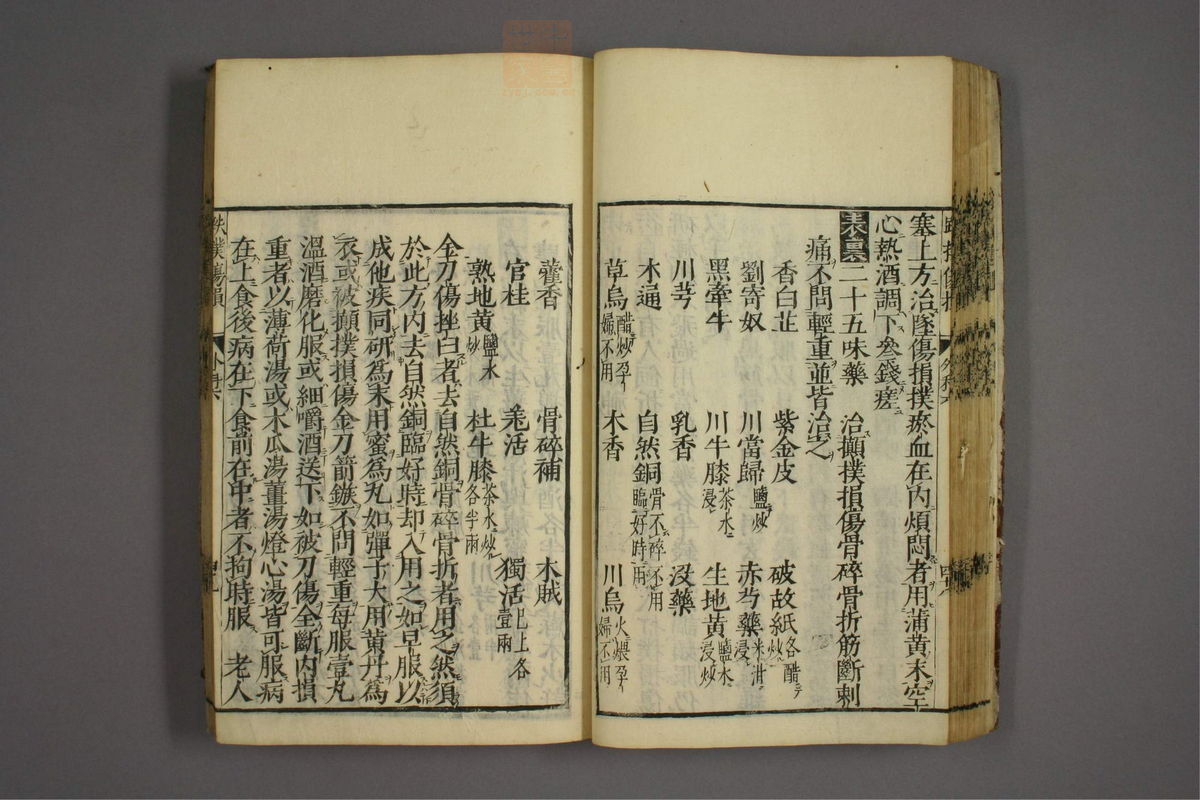 塞上方治墜傷損撲瘀血在內煩悶者用蒲黃末空
心熱酒調下叁錢瘥
表裏二十五味藥　治攧撲損傷骨碎骨折筋斷刺
痛不問輕重並皆治之
香白芷　紫金皮　破故紙各醋炒
劉寄奴　川當歸鹽炒　赤芍藥米泔浸
黑牽牛　川牛膝茶水浸　生地黃鹽水浸炒
川芎　乳香　沒藥
木通　自然銅骨不碎不用臨好時用
草烏醋炒孕婦不用　木香　川烏火煨孕婦不用
藿香　骨碎補　木賊
官桂　羌活　獨活已上各壹兩
熟地黃鹽水炒　杜牛膝茶水炒各半兩
金刀傷挫臼者去自然銅骨碎骨折者用之然須
於此方內去自然銅臨好時却入用之如早服以
成他疾同研為末用蜜為丸如彈子大用黃丹為
衣或被攧撲損傷金刀箭鏃不問輕重每服壹丸
溫酒磨化服或細嚼酒送下如被刀傷全斷內損
重者以薄荷湯或木瓜湯薑湯燈心湯皆可服病
在上食後病在下食前在中者不拘時服　老人
跌撲傷損